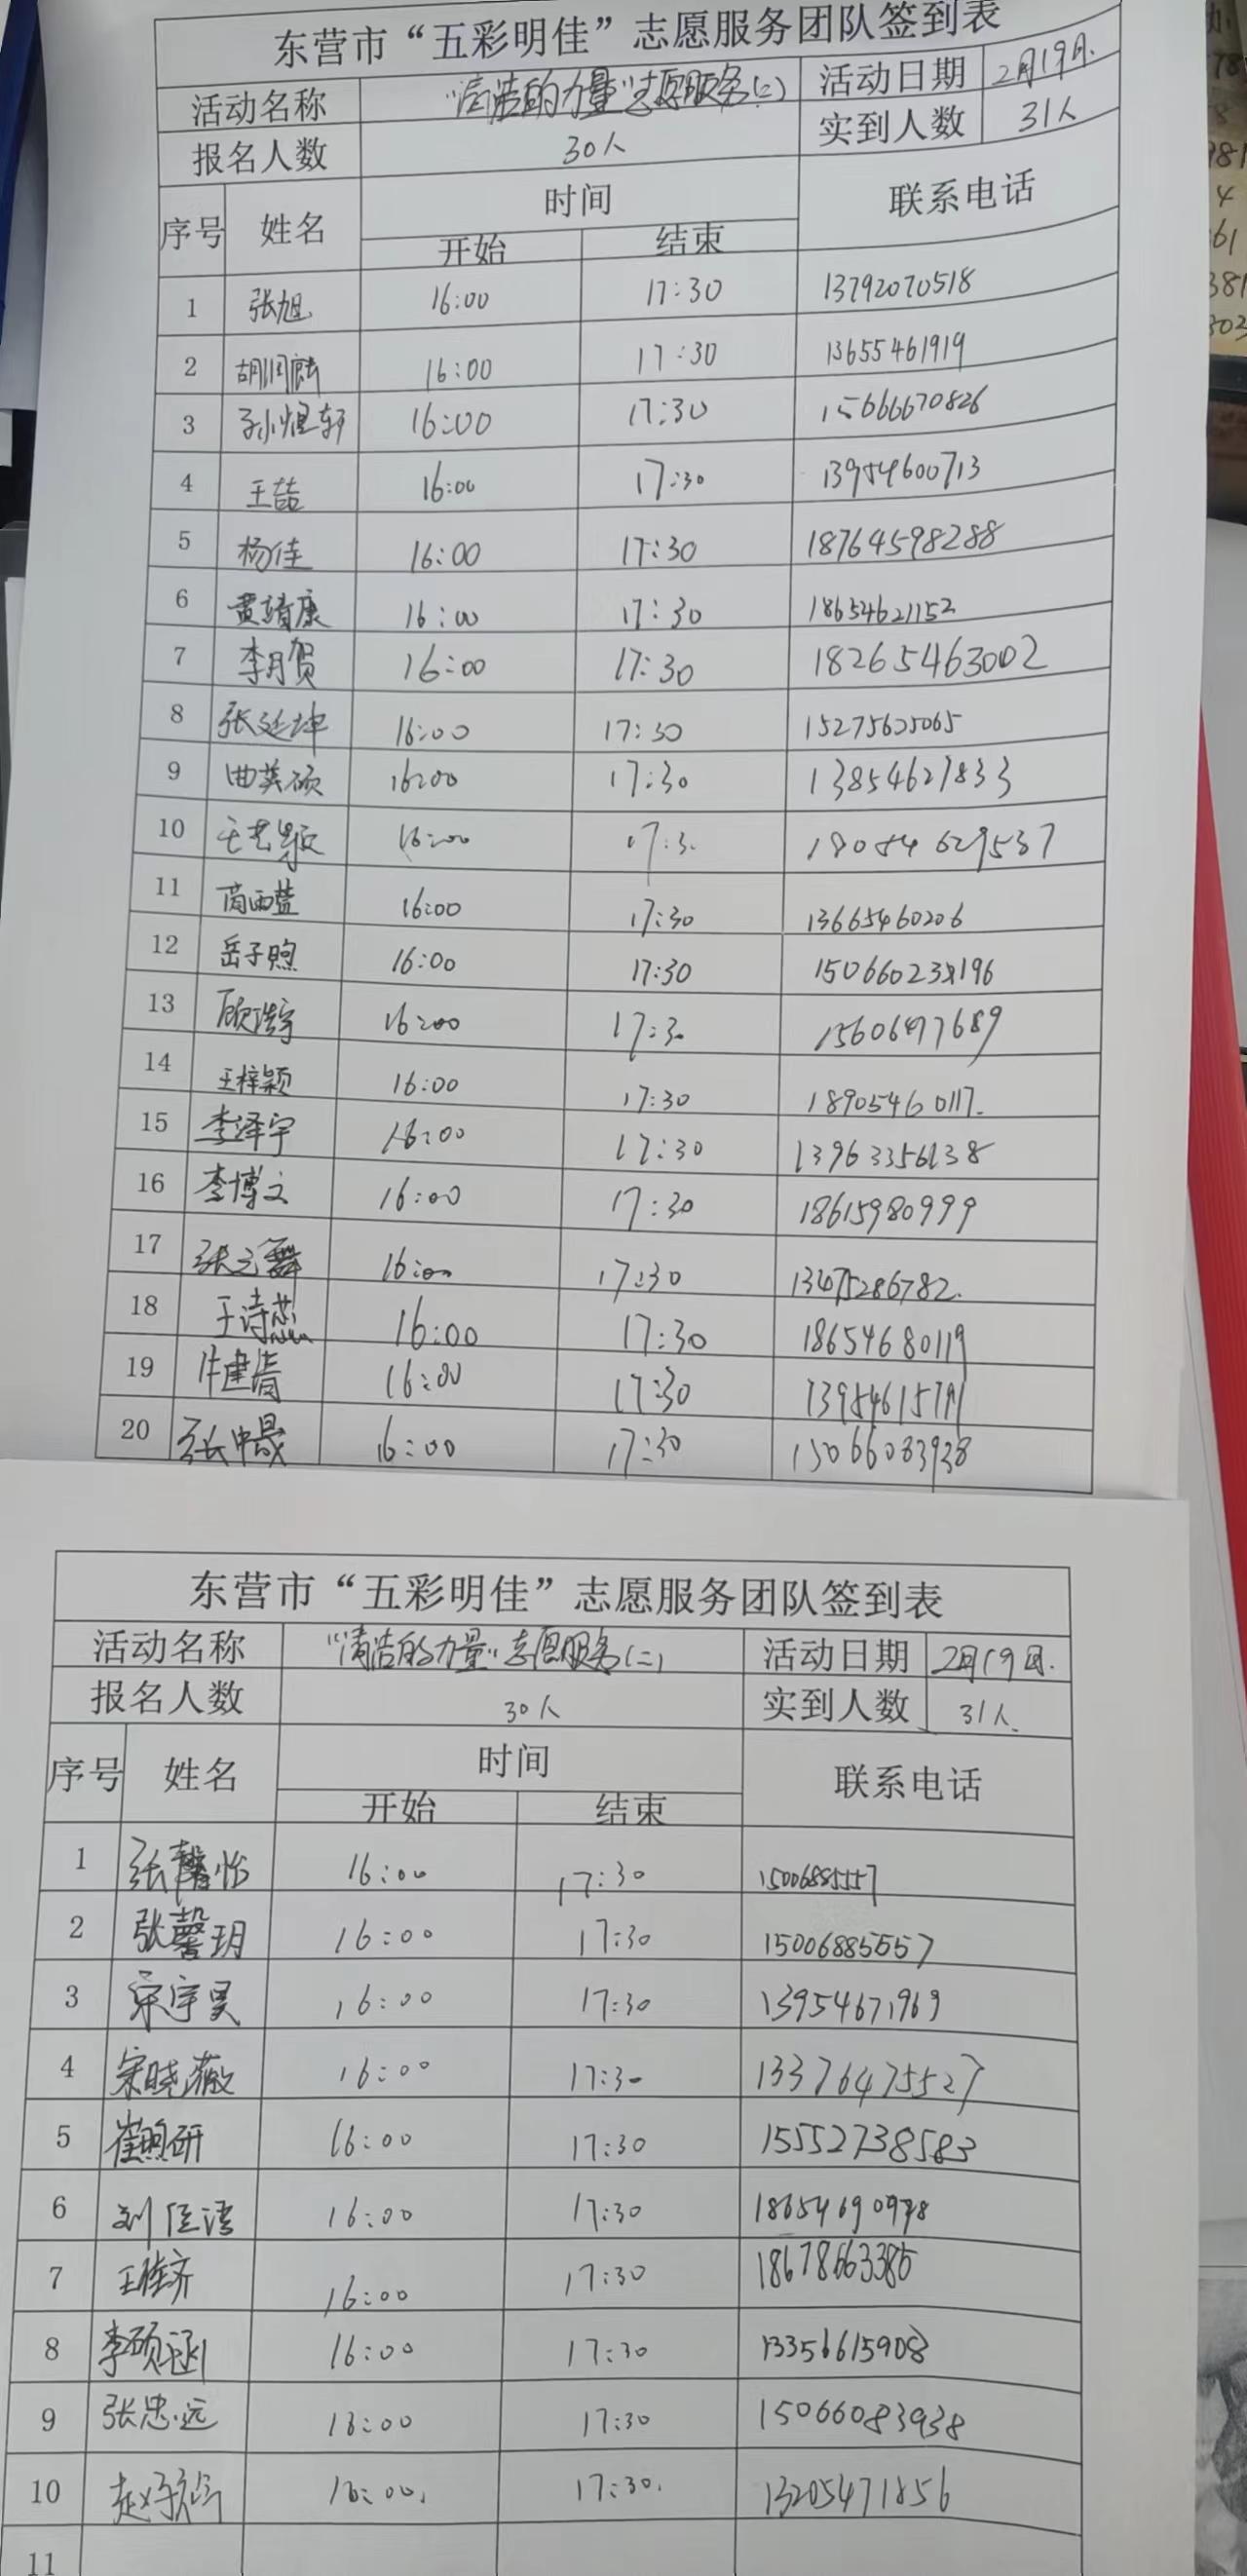 东营市“五彩明佳”志愿服务团队签到表
活动名称 “清洁的力量”志愿服务(二) 活动日期 2月19日.
报名人数 30人 实到人数 31人
序号 姓名 时间 联系电话
开始 结束
1 张旭 16:00 17:30 13792070518
2 胡润 16:00 17:30 13655461919
3 孙煜轩 16:00 17:30 15666670826
4 王喆 16:00 17:30 13954600713
5 杨佳 16:00 17:30 18764598288
6 黄靖康 16:00 17:30 18654621152
7 李月贺 16:00 17:30 18265463002
8 张廷坤 16:00 17:30 15275625065
9 曲英硕 16:00 17:30 13854627833
10 16:00 17:3. 18054629537
11 16:00 17:30 13665460206
12 岳子煦 16:00 17:30
13 顾浩宇 16:00 17:30 15606477689
14 王梓颖 16:00 17:30 18905460117.
15 李泽宇 16:00 17:30 13963356138
16 李博文 16:00 17:30 18615980999
17 张之舞 16:00 17:30 13475286782.
18 王诗蕊 16:00 17:30 18654680119
19 牛建清 16:00 17:30
20 张中晟 16:00 17:30 15066083938
东营市“五彩明佳”志愿服务团队签到表
活动名称 “清洁的力量”志愿服务(二) 活动日期 2月19日.
报名人数 30人 实到人数 31人.
序号 姓名 时间 联系电话
开始 结束
1 张馨怡 16:00 17:30 15006885557
2 张馨玥 16:00 17:30 15006885557
3 宋宇昊 16:00 17:30 13954671969
4 宋晓薇 16:00 17:30 13376475527
5 崔煦研 16:00 17:30 15552738583
6 16:00 17:30 18654690978
7 16:00 17:30 18678663385
8 李硕涵 16:00 17:30 13356615908
9 张忠远 16:00 17:30 15066083938
10 16:00. 17:30. 13205471856
11